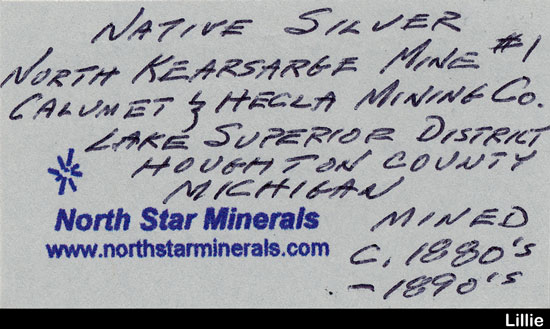 NATIVE SILVER
NORTH KEARSARGE MINE #1
CALUMET & HECLA MINING CO.
LAKE SUPERIOR DISTRICT
HOUGHTON COUNTY
MICHIGAN
North Star Minerals
www.northstarminerals.com
MINED
C. 1880's
- 1890's
Lillie